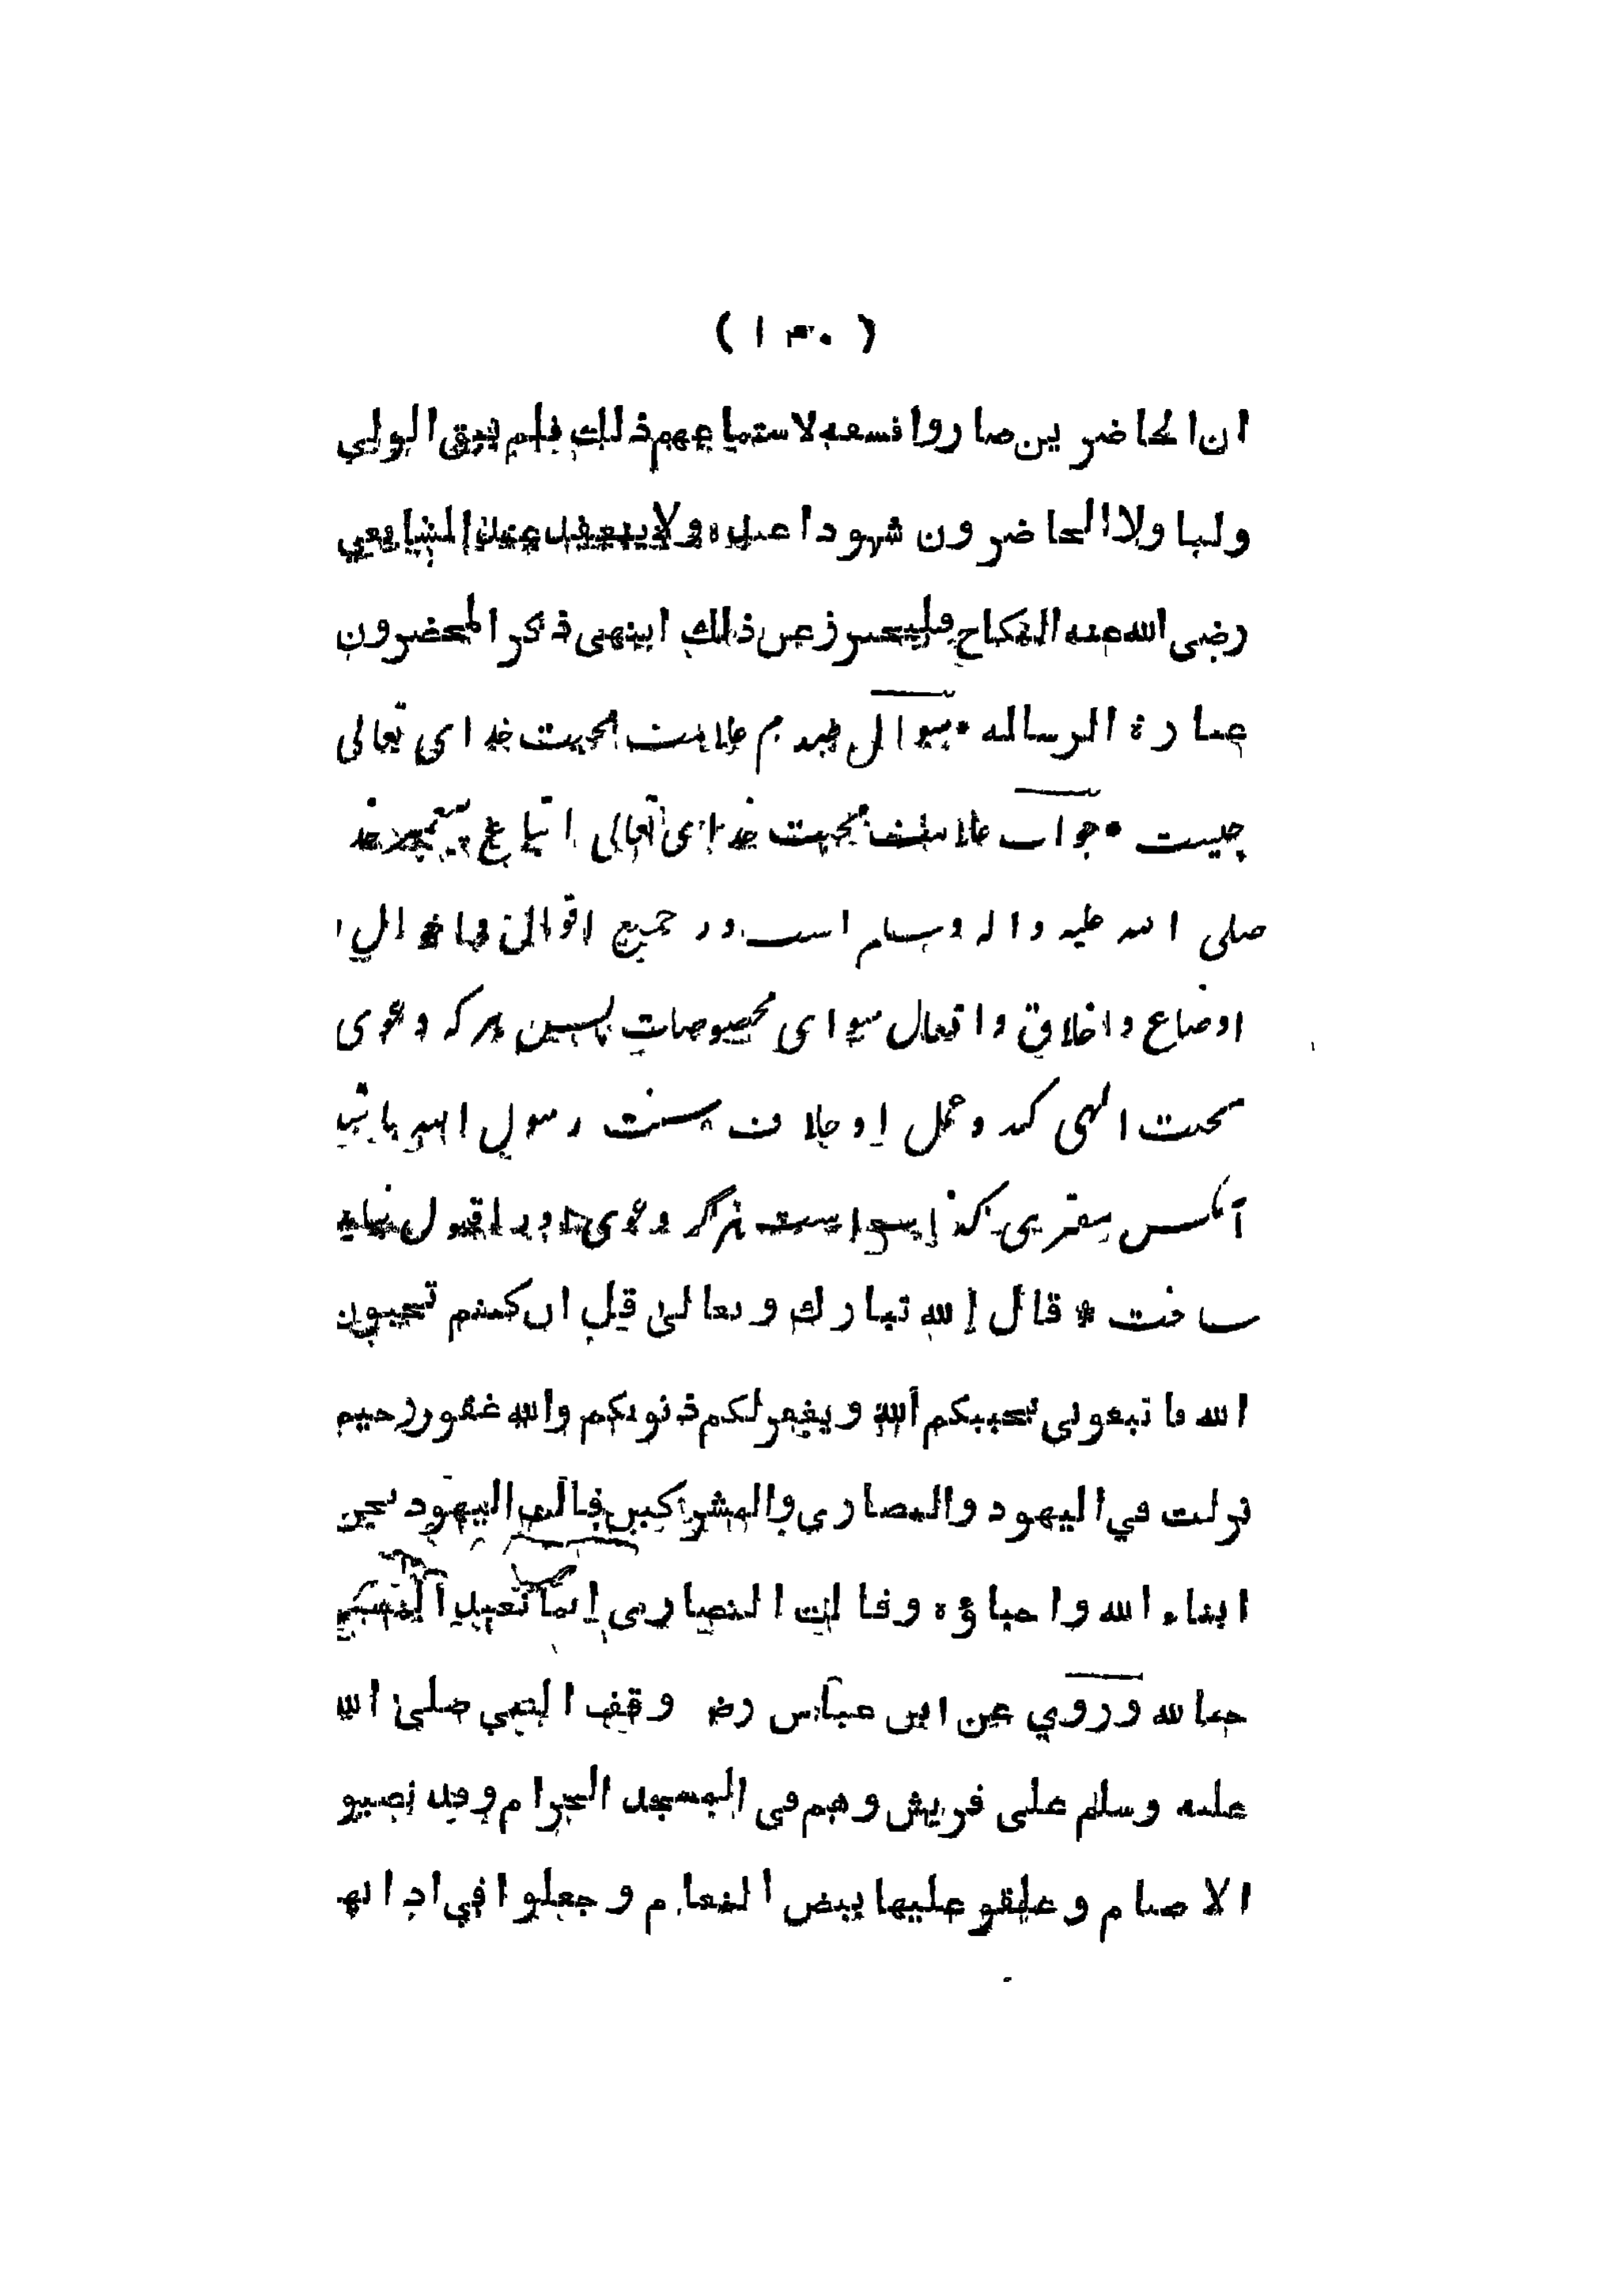 ( ١٣٠ )
ان الحاضرين صاروا فسقه لاستماعهم ذلك فلم يبق الولي
وليا ولا الحاضرون شهودا عدله ولا ينعقد عند الشافعي
رضى الله عنه النكاح فليحترز عن ذلك اينهى ذكر المحضرون
عبارة الرساله • سوال هجدهم علامت محبت خداى تعالى
چيست • جواب علامت محبت خداى تعالى اتباع پيغمبر خدا
صلى الله عليه واله وسلم است در جميع اقوال و احوال
اوضاع و اخلاق و افعال سواى مخصوصات پس هركه دعوى
محبت الهى كند و عمل او خلاف سنت رسول الله باشد
آنكس مفترى كذاب است هرگز دعوى او را قبول نبايد
ساخت * قال الله تبارك وتعالى قل ان كنتم تحبون
الله فاتبعونى يحببكم الله ويغفر لكم ذنوبكم والله غفور رحيم
نزلت في اليهود والنصارى والمشركين قالت اليهود نحن
ابناء الله واحباؤه وقالت النصارى انما نعبد المسيح
حبا لله وروي عن ابن عباس رض وقف النبي صلى الله
عليه وسلم على قريش وهم فى المسجد الحرام وقد نصبو
الاصنام وعلقو عليها بيض النعام وجعلوا في اذانها